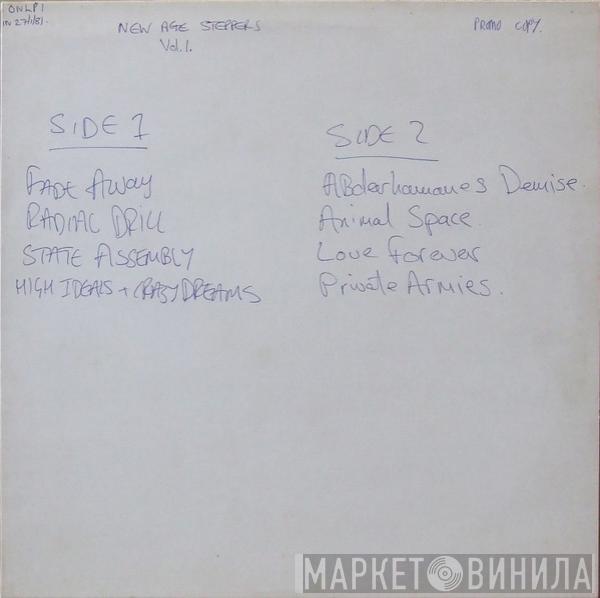 ONLP 1
IN 27/1/81.
NEW AGE STEPPERS
Vol. 1.
PROMO COPY.
SIDE 1
FADE AWAY
RADIAL DRILL
STATE ASSEMBLY
HIGH IDEALS + CRAZY DREAMS
SIDE 2
ABderhamanes Demise.
Animal Space.
Love Forever
Private Armies.
МАРКЕТ ВИНИЛА